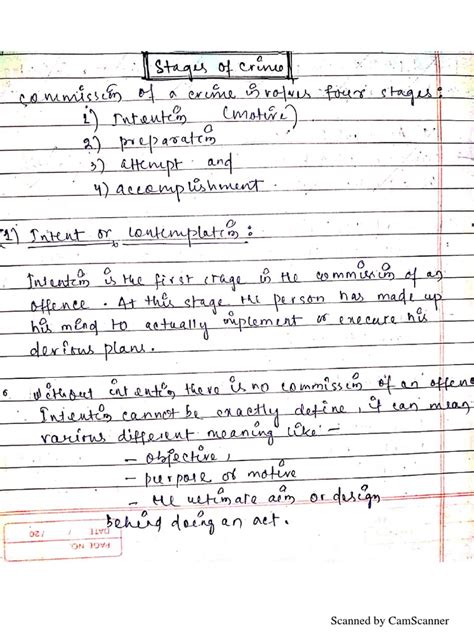 Stages of crime
commission of a crime involves four stages:
1) Intention (motive)
2) preparation
3) attempt and
4) accomplishment
1) Intent or contemplation:
Intention is the first stage in the commission of an
offence. At this stage the person has made up
his mind to actually implement or execute his
devious plans.
Without intention there is no commission of an offence
Intention cannot be exactly define, it can mean
various different meaning like -
- objective,
- purpose or motive
- the ultimate aim or design
behind doing an act.
PAGE NO
DATE / /20
Scanned by CamScanner